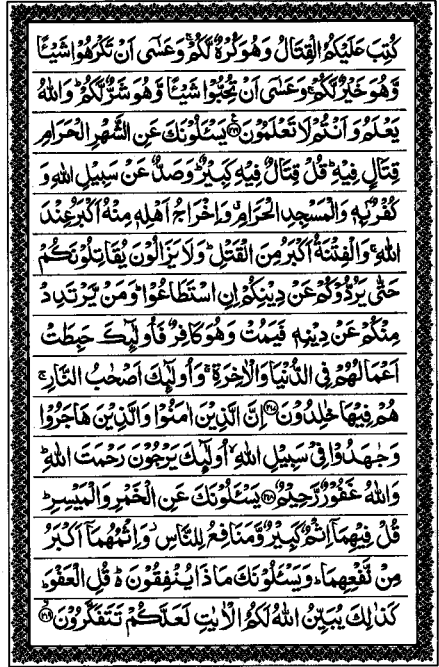 كُتِبَ عَلَيْكُمُ الْقِتَالُ وَهُوَ كُرْهٌ لَّكُمْ ۚ وَعَسٰٓى اَنْ تَكْرَهُوْا شَيْـًٔا
وَّهُوَ خَيْرٌ لَّكُمْ ۚ وَعَسٰٓى اَنْ تُحِبُّوْا شَيْـًٔا وَّهُوَ شَرٌّ لَّكُمْ ؕ وَاللّٰهُ
يَعْلَمُ وَاَنْتُمْ لَا تَعْلَمُوْنَ ۝۲۱۶ يَسْـَٔلُوْنَكَ عَنِ الشَّهْرِ الْحَرَامِ
قِتَالٍ فِيْهِ ؕ قُلْ قِتَالٌ فِيْهِ كَبِيْرٌ ؕ وَصَدٌّ عَنْ سَبِيْلِ اللّٰهِ وَ
كُفْرٌۢ بِهٖ وَالْمَسْجِدِ الْحَرَامِ ۗ وَاِخْرَاجُ اَهْلِهٖ مِنْهُ اَكْبَرُ عِنْدَ
اللّٰهِ ۚ وَالْفِتْنَةُ اَكْبَرُ مِنَ الْقَتْلِ ؕ وَلَا يَزَالُوْنَ يُقَاتِلُوْنَكُمْ
حَتّٰى يَرُدُّوْكُمْ عَنْ دِيْنِكُمْ اِنِ اسْتَطَاعُوْا ؕ وَمَنْ يَّرْتَدِدْ
مِنْكُمْ عَنْ دِيْنِهٖ فَيَمُتْ وَهُوَ كَافِرٌ فَاُولٰٓئِكَ حَبِطَتْ
اَعْمَالُهُمْ فِي الدُّنْيَا وَالْاٰخِرَةِ ۚ وَاُولٰٓئِكَ اَصْحٰبُ النَّارِ ۚ
هُمْ فِيْهَا خٰلِدُوْنَ ۝۲۱۷ اِنَّ الَّذِيْنَ اٰمَنُوْا وَالَّذِيْنَ هَاجَرُوْا
وَجٰهَدُوْا فِيْ سَبِيْلِ اللّٰهِ ۙ اُولٰٓئِكَ يَرْجُوْنَ رَحْمَتَ اللّٰهِ ؕ
وَاللّٰهُ غَفُوْرٌ رَّحِيْمٌ ۝۲۱۸ يَسْـَٔلُوْنَكَ عَنِ الْخَمْرِ وَالْمَيْسِرِ ؕ
قُلْ فِيْهِمَآ اِثْمٌ كَبِيْرٌ وَّمَنَافِعُ لِلنَّاسِ ۫ وَاِثْمُهُمَآ اَكْبَرُ
مِنْ نَّفْعِهِمَا ؕ وَيَسْـَٔلُوْنَكَ مَاذَا يُنْفِقُوْنَ ؕ۬ قُلِ الْعَفْوَ ؕ
كَذٰلِكَ يُبَيِّنُ اللّٰهُ لَكُمُ الْاٰيٰتِ لَعَلَّكُمْ تَتَفَكَّرُوْنَ ۝۲۱۹